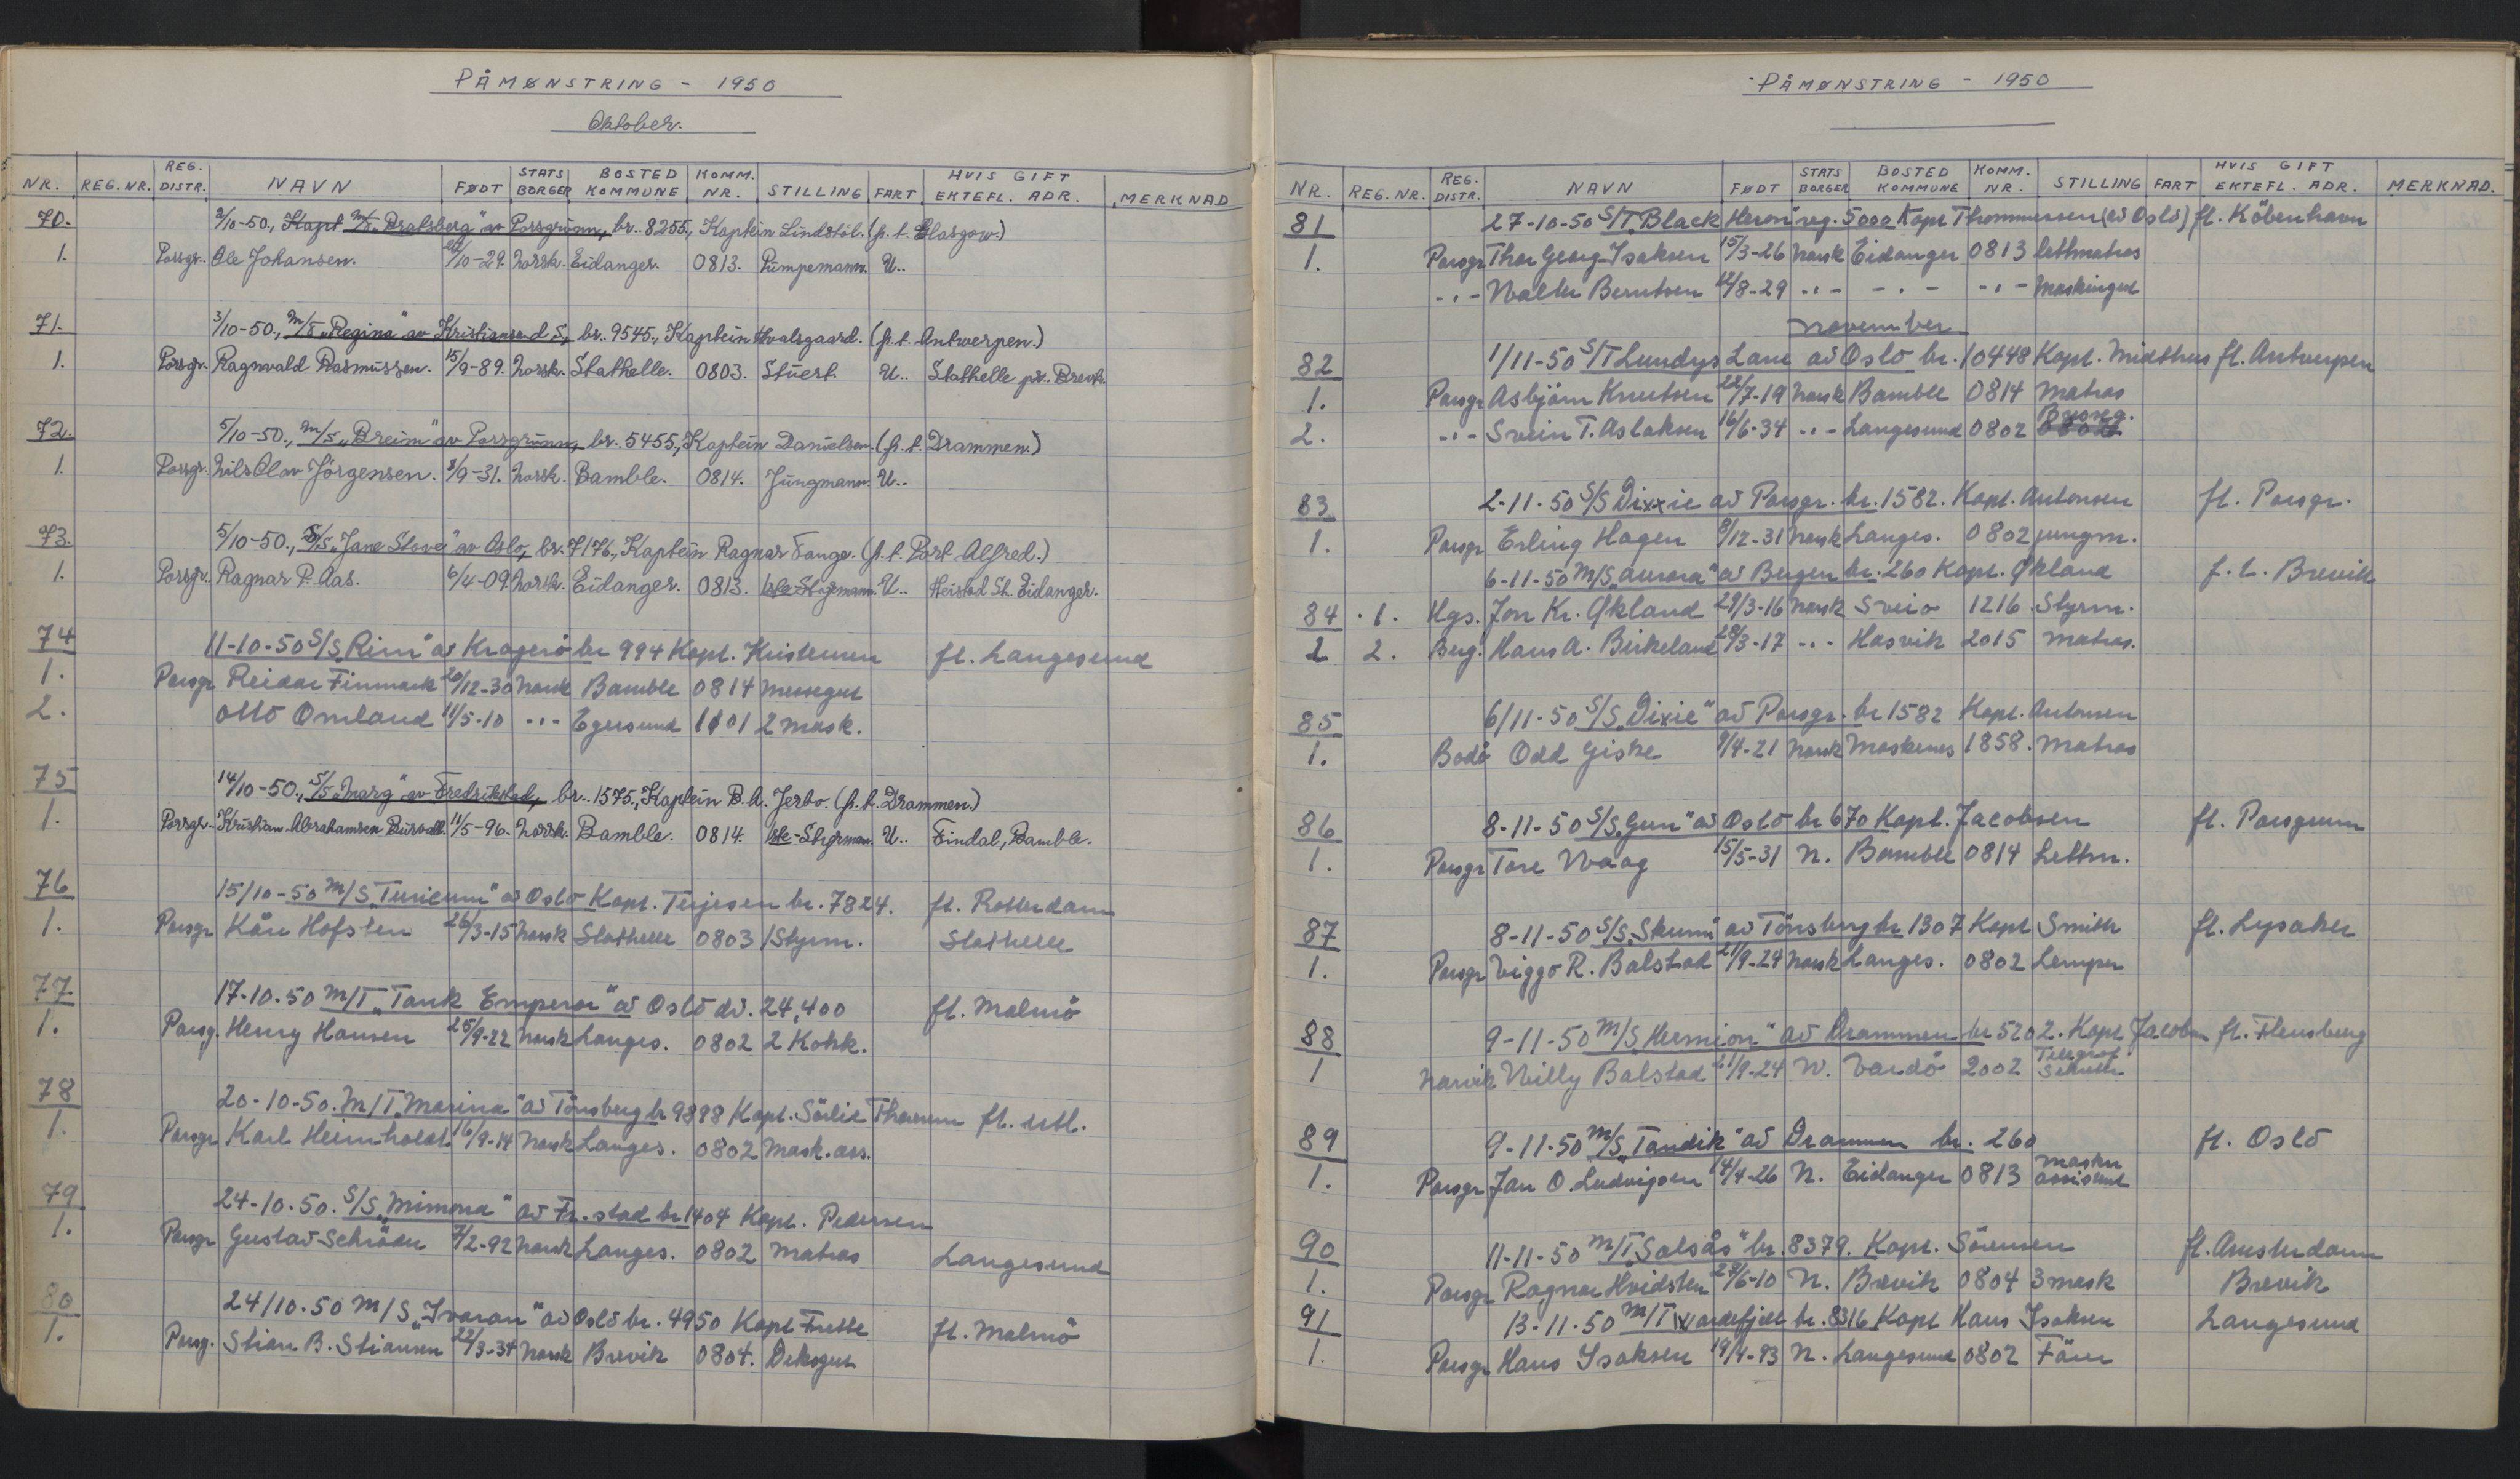 PÅMØNSTRING - 1950
Oktober.
NR. REG. NR. REG. DISTR. NAVN FØDT STATS BORGER BOSTED KOMMUNE KOMM. NR. STILLING FART HVIS GIFT EKTEFL. ADR. MERKNAD
70. 2/10-50., Kapt M/S „Bratsberg" av Porsgrunn, br. 8255, Kaptein Lindstøl. (p.t. Glasgow.)
1. Porsgr. Ole Johansen. /10-29. Norsk. Eidanger. 0813. Pumpemann. U..
71. 3/10-50., M/S „Regina" av Kristiansand S, br. 9545., Kaptein Hvalsgaard. (p.t. Antwerpen.)
1. Porsgr. Ragnvald Rasmussen. 15/9-89. Norsk. Stathelle. 0803. Stuert. U.. Stathelle pr. Brevik.
72. 5/10-50., M/S „Breim" av Porsgrunn, br. 5455., Kaptein Danielsen. (p.t. Drammen.)
1. Porsgr. Nils Olav Jörgensen. 3/9-31. Norsk. Bamble. 0814. Jungmann. U..
73. 5/10-50., S/S „Jane Stove" av Oslo, br. 7176., Kaptein Ragnar Fange. (p.t. Port Alfred.)
1. Porsgr. Ragnar P. Aas. 6/4-09. Norsk. Eidanger. 0813. 1ste Styrmann. U.. Heistad St. Eidanger.
74 11-10-50 S/S „Rim" av Kragerö br 994 Kapt. Kristensen ft. Langesund
1. Porsgr Reidar Finmark 20/12-30 Norsk Bamble 0814 Messegut
2. Otto Omland 11/5-10 -"- Egersund 1101 2 mask.
75 14/10-50., S/S „Marg" av Fredrikstad, br. 1575., Kaptein B.A. Jerbo. (p.t. Drammen.)
1. Porsgr. Kristian Abrahamsen 11/5-96. Norsk. Bamble. 0814. 1ste-Styrman. U.. Findal, Bamble.
76 15/10-50 M/S „Turicum" av Oslo Kapt. Terjesen br. 7824. ft. Rotterdam
1. Porsgr Kåre Hofsten 26/3-15 Norsk Stathelle 0803 1 Styrm. Stathelle
77. 17-10-50 M/T „Tank Emperor" av Oslo dv. 24,400 ft. Malmö
1. Porsg. Henry Hansen 25/9-22 Norsk Langes. 0802 2 Kokk.
78 20-10-50. M/T „Marina" av Tönsberg br 9898 Kapt. Sörlie ft. utl.
1. Porsgr Karl Heimholdt 16/9-14 Norsk Langes. 0802 Mask. ass.
79 24-10-50. S/S „Mimona" av Fr. stad br 1404 Kapt. Pedersen
1. Porsgr Gustav Schröder 7/2-92 Norsk Langes. 0802 Matros Langesund
80 24/10-50 M/S „Ivaran" av Oslo br. 4950 Kapt Frette ft. Malmö
1. Porsg. Stian B. Stiansen 22/3-34 Norsk Brevik 0804. Deksgut
PÅMØNSTRING - 1950
NR. REG. NR. REG. DISTR. NAVN FØDT STATS BORGER BOSTED KOMMUNE KOMM. NR. STILLING FART HVIS GIFT EKTEFL. ADR. MERKNAD.
81 27-10-50 S/T „Black Heron" reg. 5000 Kapt Thommessen (av Oslo) ft. Köbenhavn
1. Porsgr Thor Georg Isaksen 15/3-26 Norsk Eidanger 0813 lettmatros
-"- Walter Berntsen 12/8-29 -"- -"- -"- Maskingut
november
82 1/11-50 S/T Lundys Lane av Oslo br. 10448 Kapt. Midthus ft. Antwerpen
1. Porsgr Asbjörn Knutsen 22/7-19 Norsk Bamble 0814 Matros
2. -"- Svein T. Aslaksen 16/6-34 -"- Langesund 0802 Bysseg.
83 2-11-50 S/S Dixxie av Porsgr. br. 1582. Kapt. Antonsen ft. Porsgr.
1. Porsgr Erling Hagen 8/12-31 Norsk Langes. 0802 jungm.
6-11-50 M/S „Aurora" av Bergen br. 260 Kapt. Økland f.t. Brevik
84 1. Hgs. Jon Kr. Økland 29/3-16 Norsk Sveio 1216 Styrm.
2 2. Berg. Hans A. Birkeland 28/3-17 -"- Hasvik 2015 Matros.
85 6/11-50 S/S „Dixie" av Porsgr. br 1582 Kapt. Antonsen
1. Bodö Odd Giske 9/4-21 Norsk Moskenes 1858. Matros
86 8-11-50 S/S „Gun" av Oslo br 670 Kapt. Jacobsen ft. Porsgrunn
1. Porsgr Tore Waag 15/5-31 N. Bamble 0814 Lettm.
87 8-11-50 S/S „Skrim" av Tönsberg br 1307 Kapt Smith ft. Lysaker
1. Porsgr Viggo R. Balstad 21/9-24 Norsk Langes. 0802 Lemper
88 9-11-50 M/S „Hermion" av Drammen br 5202. Kapt Jacobsen ft. Flensberg
1 Narvik Willy Balstad /9-24 N. Vardö 2002 Telegraf
89 9-11-50 M/S „Tandik" av Drammen br. 260 ft. Oslo
1. Porsgr Jan O. Ludvigsen 14/4-26 N. Eidanger 0813 Maskin assistent
90 11-11-50 M/T „Solsås" br. 8379. Kapt. Sörensen ft. Amsterdam
1. Porsgr Ragnar Hvidsten 28/6-10 N. Brevik 0804 3 mask Brevik
91 13-11-50 M/T Vardefjell br. 8316 Kapt Hans Isaksen Langesund
1. Porsgr Hans Isaksen 19/4-93 N. Langesund 0802 Förer